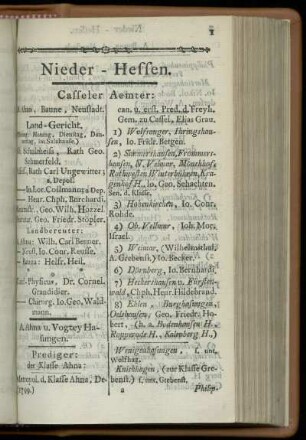 1
Nieder - Hessen.
Casseler Aemter:
Ahna, Baune, Neustadt.
Land-Gericht,
Montag, Dienstag, Don-
Rath Geo.
Scheuerfeld.
Rath Carl Ungewitter;
Depof.
Heur. Chph. Burchardi.
Geo. Wilh. Horzel
Geo. Friedr. Stöpler.
Landbereuter:
Ahna: Wilh. Carl Benner.
Io. Cour.
Helfr. Heil.
Physicus, Dr. Cornel.
Grandidier.
Chirurg. Io. Geo. Wald-
mann.
Ahna u. Vogtey Ha-
sungen.
Prediger:
der Klasse Ahna:
d. Klasse Ahna, De-
1799.)
can. u. erst. Pred. d. Freyh.
Gem. zu Cassel, Elias Grau.
1) Wolfsanger, Ihringshau-
sen, Io. Fridr. Betgen.
2) Simmershausen, Frommers-
hausen, N. Velmar, Mönchhof,
Rothwesten, Winterbühren, Kra-
genhof H., Io. Geo. Schachten.
Sen. d. Klasse.
3) Hohenkirchen, Io. Conr.
Rohde.
4) Ob. Velmar, Ioh. Mor.
Israel.
5) Weimar, (Wilhelmsthal,
A. Grebenst.) Io. Becker.
6) Dörnberg, Io. Bernhardi.
7) Heckershausen u. Fürsten-
wald, Chph. Henr. Hildebrand.
8) Ehlen, Burghasungen,
Oelshausen, Geo. Friedr. Ho-
bert. (h. a. Bodenhausen H.,
Roppeyode H., Kalenberg H.)
Wenigenhasungen, f. unt.
Wolfhag.
Knickhagen, (zur Klasse Gre-
benst.) f. unt. Grebenst.
a
Philip.